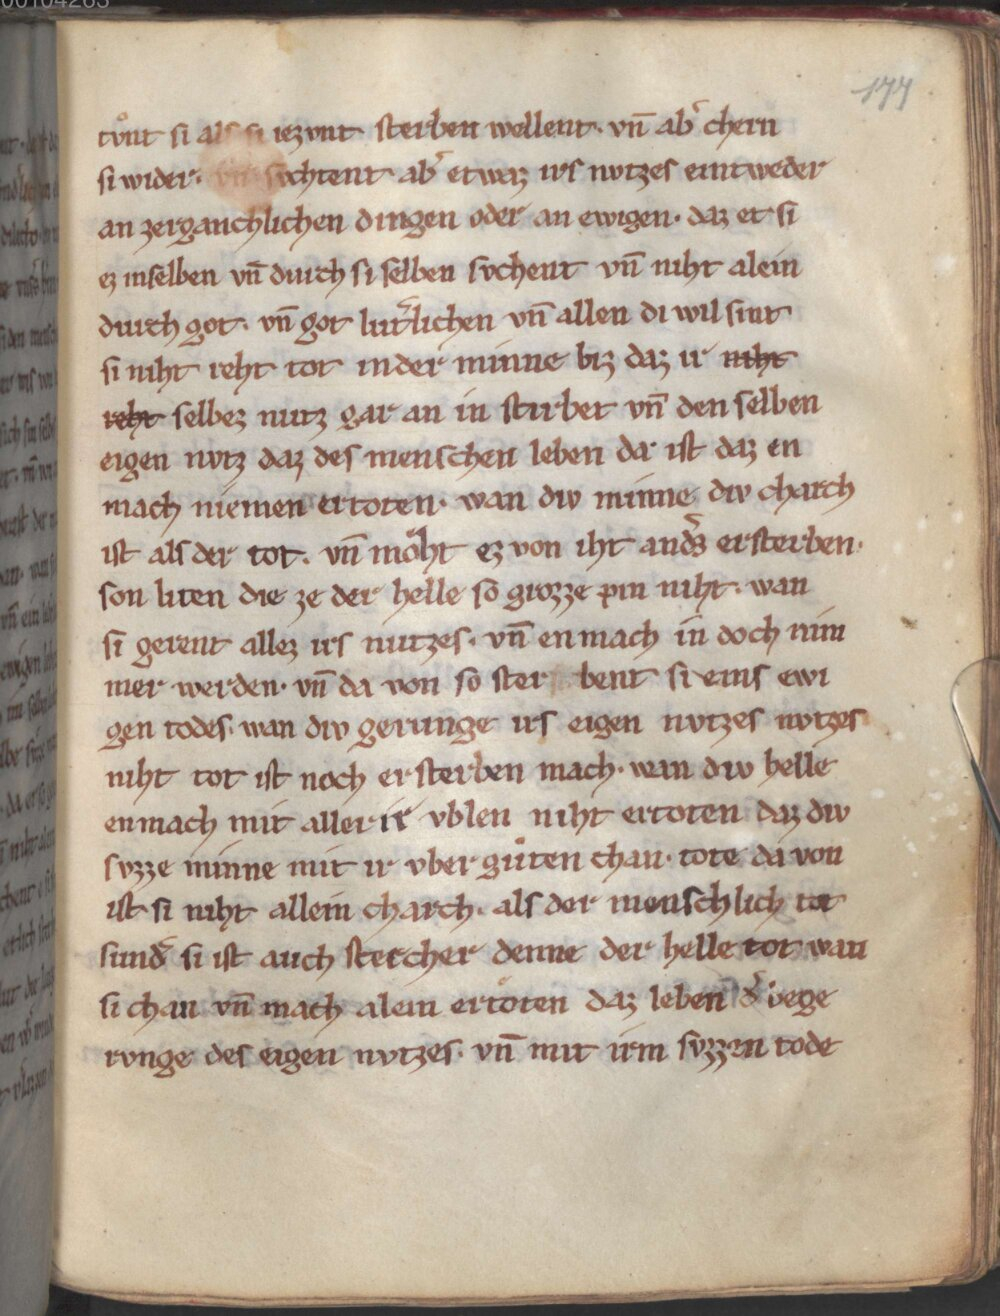 177
tvͦnt si als si iezvnt sterben wellent· vn̄ ab̾ chern
si wider· vn̄ svchtent ab̾ etwaz irs nvtzes eintweder
an zerganchlichen dingen oder an ewigen· daz et si
ez inselben vn̄ durch si selben svchent vn̄ niht alein
durch got· vn̄ got lut̾lichen vn̄ allen di wil sint
si niht reht tot in der minne biz daz ir niht
reht selbez nutz gar an in stirbet vn̄ den selben
eigen nvtz daz des menschen leben da ist daz en
mach niemen ertoten· wan div minne div charch
ist als der tot· vn̄ moͤht ez von iht and̾s ersterben·
son liten die ze der helle so grozze pin niht· wan
si gerent allez irs nutzes· vn̄ en mach in doch nim
mer werden· vn̄ da von so ster bent si eins ewi
gen todes· wan div gerunge irs eigen nvtzes nvtzes
niht tot ist noch ersterben mach· wan div helle
enmach mit aller ir vblen niht ertoten daz div
svzze minne mit ir vber guͤten chan· tote da von
ist si niht allein charch· als der menschlich tot
sund̾ si ist auch stercher denne der helle tot wan
si chan vn̄ mach alein ertoten daz leben d̾ bege
rvnge des eigen nvtzes· vn̄ mit irm svzzen tode